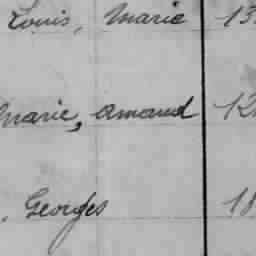 Louis, Marie 13
Marie, Amand 12
, Georges 18